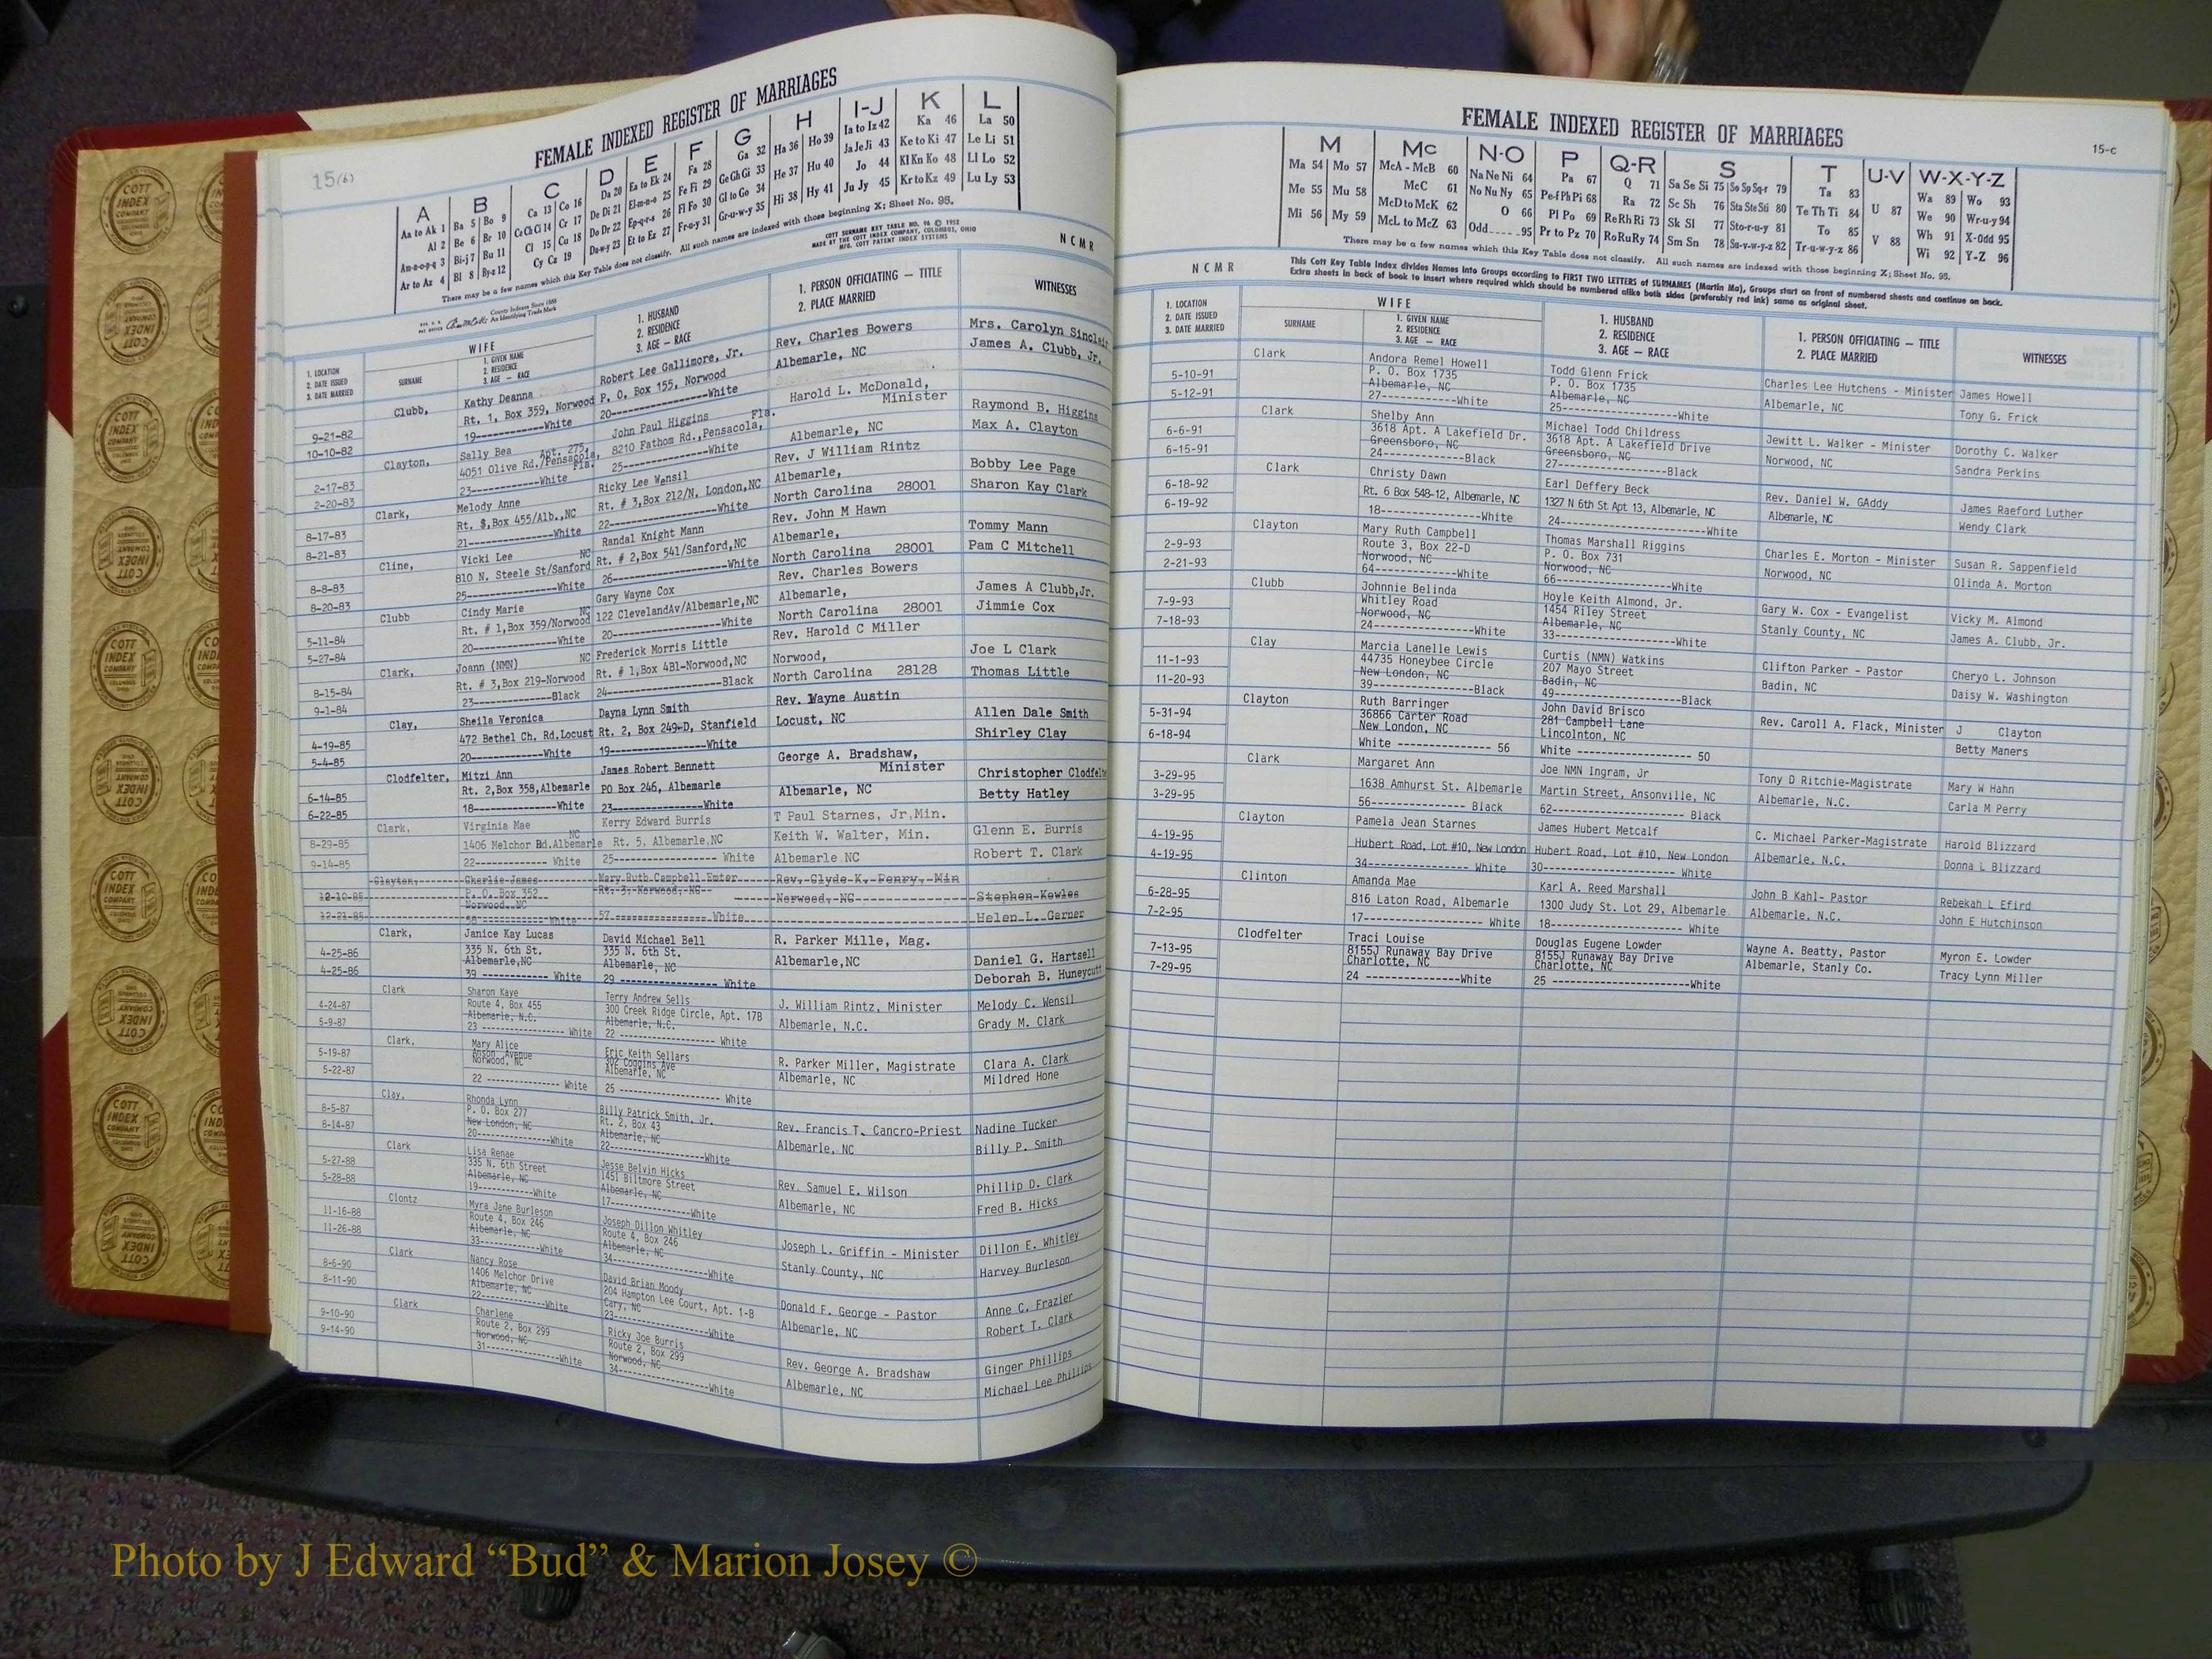 15(b)
FEMALE INDEXED REGISTER OF MARRIAGES
A B C D E F G H I-J K L
Aa to Ak 1 Ba 5 Bo 9 Ca 13 Co 16 Da 20 Ea to Ek 24 Fa 28 Ga 32 Ha 36 Ho 39 Ia to Iz 42 Ka 46 La 50
Al 2 Be 6 Br 10 Ce Ch Ci 14 Cr 17 De Di 21 El-m-n-o 25 Fe Fi 29 Ge Gh Gi 33 He 37 Hu 40 Ja Je Ji 43 Ke to Ki 47 Le Li 51
Am-n-o-p-q 3 Bi-j 7 Bu 11 Cl 15 Cu 18 Do Dr 22 Ep-q-r-s 26 Fl Fo 30 Gl to Go 34 Hi 38 Hy 41 Jo 44 Kl Kn Ko 48 Ll Lo 52
Ar to Az 4 Bl 8 By-z 12 Cy Cz 19 Du-w-y 23 Et to Ez 27 Fr-u-y 31 Gr-u-w-y 35 Ju Jy 45 Kr to Kz 49 Lu Ly 53
There may be a few names which this Key Table does not classify. All such names are indexed with those beginning X; Sheet No. 95.
COTT SURNAME KEY TABLE NO. 96 © 1952
MADE BY THE COTT INDEX COMPANY, COLUMBUS, OHIO
MFG. COTT PATENT INDEX SYSTEMS
County Indexes Since 1888
An Identifying Trade Mark
NCMR
1. LOCATION
2. DATE ISSUED
3. DATE MARRIED
WIFE
SURNAME
1. GIVEN NAME
2. RESIDENCE
3. AGE — RACE
1. HUSBAND
2. RESIDENCE
3. AGE — RACE
1. PERSON OFFICIATING — TITLE
2. PLACE MARRIED
WITNESSES
Clubb, Kathy Deanna Robert Lee Gallimore, Jr. Rev. Charles Bowers Mrs. Carolyn Sinclair
9-21-82 Rt. 1, Box 359, Norwood P. O. Box 155, Norwood Albemarle, NC James A. Clubb, Jr.
10-10-82 19------------White 20------------------White
Clayton, Sally Bea Apt. 275, John Paul Higgins Fla. Harold L. McDonald, Minister Raymond B. Higgins
2-17-83 4051 Olive Rd./Pensacola, Fla. 8210 Fathom Rd.,Pensacola, Albemarle, NC Max A. Clayton
2-20-83 23------------White 25------------------White
Clark, Melody Anne Ricky Lee Wensil Rev. J William Rintz Bobby Lee Page
8-17-83 Rt. $,Box 455/Alb.,NC Rt. # 3,Box 212/N. London,NC Albemarle, Sharon Kay Clark
8-21-83 21------------White 22------------------White North Carolina 28001
Cline, Vicki Lee NC Randal Knight Mann Rev. John M Hawn Tommy Mann
8-8-83 810 N. Steele St/Sanford Rt. # 2,Box 541/Sanford,NC Albemarle, Pam C Mitchell
8-20-83 25------------White 26------------------White North Carolina 28001
Clubb Cindy Marie NC Gary Wayne Cox Rev. Charles Bowers James A Clubb,Jr.
5-11-84 Rt. # 1,Box 359/Norwood 122 ClevelandAv/Albemarle,NC Albemarle, Jimmie Cox
5-27-84 20------------White 20------------------White North Carolina 28001
Clark, Joann (NMN) NC Frederick Morris Little Rev. Harold C Miller Joe L Clark
8-15-84 Rt. # 3,Box 219-Norwood Rt. # 1,Box 4B1-Norwood,NC Norwood, Thomas Little
9-1-84 23------------Black 24------------------Black North Carolina 28128
Clay, Sheila Veronica Dayna Lynn Smith Rev. Wayne Austin Allen Dale Smith
4-19-85 472 Bethel Ch. Rd.Locust Rt. 2, Box 249-D, Stanfield Locust, NC Shirley Clay
5-4-85 20------------White 19------------------White
Clodfelter, Mitzi Ann James Robert Bennett George A. Bradshaw, Minister Christopher Clodfelte
6-14-85 Rt. 2,Box 358,Albemarle PO Box 246, Albemarle Albemarle, NC Betty Hatley
6-22-85 18------------White 23------------------White
Clark, Virginia Mae Kerry Edward Burris T Paul Starnes, Jr,Min. Glenn E. Burris
8-29-85 1406 Melchor Bd.Albemarle NC Rt. 5, Albemarle,NC Keith W. Walter, Min. Robert T. Clark
9-14-85 22------------ White 25------------------ White Albemarle NC
Clayton, Charlie James Mary Ruth Campbell Emter Rev. Clyde K. Penry, Min
12-10-85 P. O. Box 352 Rt. 3, Norwood, NC Norwood, NC Stephen Kowles
Norwood, NC
12-21-85 White 57 White Helen L. Garner
Clark, Janice Kay Lucas David Michael Bell R. Parker Mille, Mag. Daniel G. Hartsell
4-25-86 335 N. 6th St. 335 N. 6th St. Albemarle,NC Deborah B. Huneycutt
4-25-86 Albemarle,NC Albemarle, NC
39 ------------ White 29 ------------------ White
Clark Sharon Kaye Terry Andrew Sells J. William Rintz, Minister Melody C. Wensil
4-24-87 Route 4, Box 455 300 Creek Ridge Circle, Apt. 17B Albemarle, N.C. Grady M. Clark
5-9-87 Albemarle, N.C. Albemarle, N.C.
23 ------------ White 22 ------------------ White
Clark, Mary Alice Eric Keith Sellars R. Parker Miller, Magistrate Clara A. Clark
5-19-87 Anson Avenue 302 Coggins Ave Albemarle, NC Mildred Hone
5-22-87 Norwood, NC Albemarle, NC
22 ------------ White 25 ------------------ White
Clay, Rhonda Lynn Billy Patrick Smith, Jr. Rev. Francis T. Cancro-Priest Nadine Tucker
8-5-87 P. O. Box 277 Rt. 2, Box 43 Albemarle, NC Billy P. Smith
8-14-87 New London, NC Albemarle, NC
20------------White 22------------------White
Clark Lisa Renae Jesse Belvin Hicks Rev. Samuel E. Wilson Phillip D. Clark
5-27-88 335 N. 6th Street 1451 Biltmore Street Albemarle, NC Fred B. Hicks
5-28-88 Albemarle, NC Albemarle, NC
19------------White 17------------------White
Clontz Myra Jane Burleson Joseph Dillon Whitley Joseph L. Griffin - Minister Dillon E. Whitley
11-16-88 Route 4, Box 246 Route 4, Box 246 Stanly County, NC Harvey Burleson
11-26-88 Albemarle, NC Albemarle, NC
33------------White 34------------------White
Clark Nancy Rose David Brian Moody Donald F. George - Pastor Anne C. Frazier
8-6-90 1406 Melchor Drive 204 Hampton Lee Court, Apt. 1-B Albemarle, NC Robert T. Clark
8-11-90 Albemarle, NC Cary, NC
22------------White 23------------------White
Clark Charlene Ricky Joe Burris Rev. George A. Bradshaw Ginger Phillips
9-10-90 Route 2, Box 299 Route 2, Box 299 Albemarle, NC Michael Lee Phillips
9-14-90 Norwood, NC Norwood, NC
31------------White 34------------------White
15-c
FEMALE INDEXED REGISTER OF MARRIAGES
M Mc N-O P Q-R S T U-V W-X-Y-Z
Ma 54 Mo 57 McA - McB 60 Na Ne Ni 64 Pa 67 Q 71 Sa Se Si 75 So Sp Sq-r 79 Ta 83 U 87 Wa 89 Wo 93
Me 55 Mu 58 McC 61 No Nu Ny 65 Pe-f Ph Pi 68 Ra 72 Sc Sh 76 Sta Ste Sti 80 Te Th Ti 84 V 88 We 90 Wr-u-y 94
Mi 56 My 59 McD to McK 62 O 66 Pl Po 69 Re Rh Ri 73 Sk Sl 77 Sto-r-u-y 81 To 85 Wh 91 X-Odd 95
McL to McZ 63 Odd 95 Pr to Pz 70 Ro Ru Ry 74 Sm Sn 78 Su-v-w-y-z 82 Tr-u-w-y-z 86 Wi 92 Y-Z 96
There may be a few names which this Key Table does not classify. All such names are indexed with those beginning X; Sheet No. 95.
NCMR
This Cott Key Table Index divides Names into Groups according to FIRST TWO LETTERS of SURNAMES (Martin Ma), Groups start on front of numbered sheets and continue on back.
Extra sheets in back of book to insert where required which should be numbered alike both sides (preferably red ink) same as original sheet.
1. LOCATION
2. DATE ISSUED
3. DATE MARRIED
WIFE
SURNAME
1. GIVEN NAME
2. RESIDENCE
3. AGE — RACE
1. HUSBAND
2. RESIDENCE
3. AGE — RACE
1. PERSON OFFICIATING — TITLE
2. PLACE MARRIED
WITNESSES
Clark Andora Remel Howell Todd Glenn Frick Charles Lee Hutchens - Minister James Howell
5-10-91 P. O. Box 1735 P. O. Box 1735 Albemarle, NC Tony G. Frick
5-12-91 Albemarle, NC Albemarle, NC
27------------White 25------------------White
Clark Shelby Ann Michael Todd Childress Jewitt L. Walker - Minister Dorothy C. Walker
6-6-91 3618 Apt. A Lakefield Dr. 3618 Apt. A Lakefield Drive Norwood, NC Sandra Perkins
6-15-91 Greensboro, NC Greensboro, NC
24------------Black 27------------------Black
Clark Christy Dawn Earl Deffery Beck Rev. Daniel W. GAddy James Raeford Luther
6-18-92 Rt. 6 Box 548-12, Albemarle, NC 1327 N 6th St Apt 13, Albemarle, NC Albemarle, NC Wendy Clark
6-19-92 18------------White 24------------------White
Clayton Mary Ruth Campbell Thomas Marshall Riggins Charles E. Morton - Minister Susan R. Sappenfield
2-9-93 Route 3, Box 22-D P. O. Box 731 Norwood, NC Olinda A. Morton
2-21-93 Norwood, NC Norwood, NC
64------------White 66------------------White
Clubb Johnnie Belinda Hoyle Keith Almond, Jr. Gary W. Cox - Evangelist Vicky M. Almond
7-9-93 Whitley Road 1454 Riley Street Stanly County, NC James A. Clubb, Jr.
7-18-93 Norwood, NC Albemarle, NC
24------------White 33------------------White
Clay Marcia Lanelle Lewis Curtis (NMN) Watkins Clifton Parker - Pastor Cheryo L. Johnson
11-1-93 44735 Honeybee Circle 207 Mayo Street Badin, NC Daisy W. Washington
11-20-93 New London, NC Badin, NC
39------------Black 49------------------Black
Clayton Ruth Barringer John David Brisco Rev. Caroll A. Flack, Minister J Clayton
5-31-94 36866 Carter Road 281 Campbell Lane Betty Maners
6-18-94 New London, NC Lincolnton, NC
White ------------ 56 White ------------------ 50
Clark Margaret Ann Joe NMN Ingram, Jr Tony D Ritchie-Magistrate Mary W Hahn
3-29-95 1638 Amhurst St. Albemarle Martin Street, Ansonville, NC Albemarle, N.C. Carla M Perry
3-29-95 56------------ Black 62------------------ Black
Clayton Pamela Jean Starnes James Hubert Metcalf C. Michael Parker-Magistrate Harold Blizzard
4-19-95 Hubert Road, Lot #10, New London Hubert Road, Lot #10, New London Albemarle, N.C. Donna L Blizzard
4-19-95 34------------ White 30------------------ White
Clinton Amanda Mae Karl A. Reed Marshall John B Kahl- Pastor Rebekah L Efird
6-28-95 816 Laton Road, Albemarle 1300 Judy St. Lot 29, Albemarle Albemarle, N.C. John E Hutchinson
7-2-95 17------------ White 18------------------ White
Clodfelter Traci Louise Douglas Eugene Lowder Wayne A. Beatty, Pastor Myron E. Lowder
7-13-95 8155J Runaway Bay Drive 8155J Runaway Bay Drive Albemarle, Stanly Co. Tracy Lynn Miller
7-29-95 Charlotte, NC Charlotte, NC
24 ------------White 25 ------------------White
Photo by J Edward “Bud” & Marion Josey ©